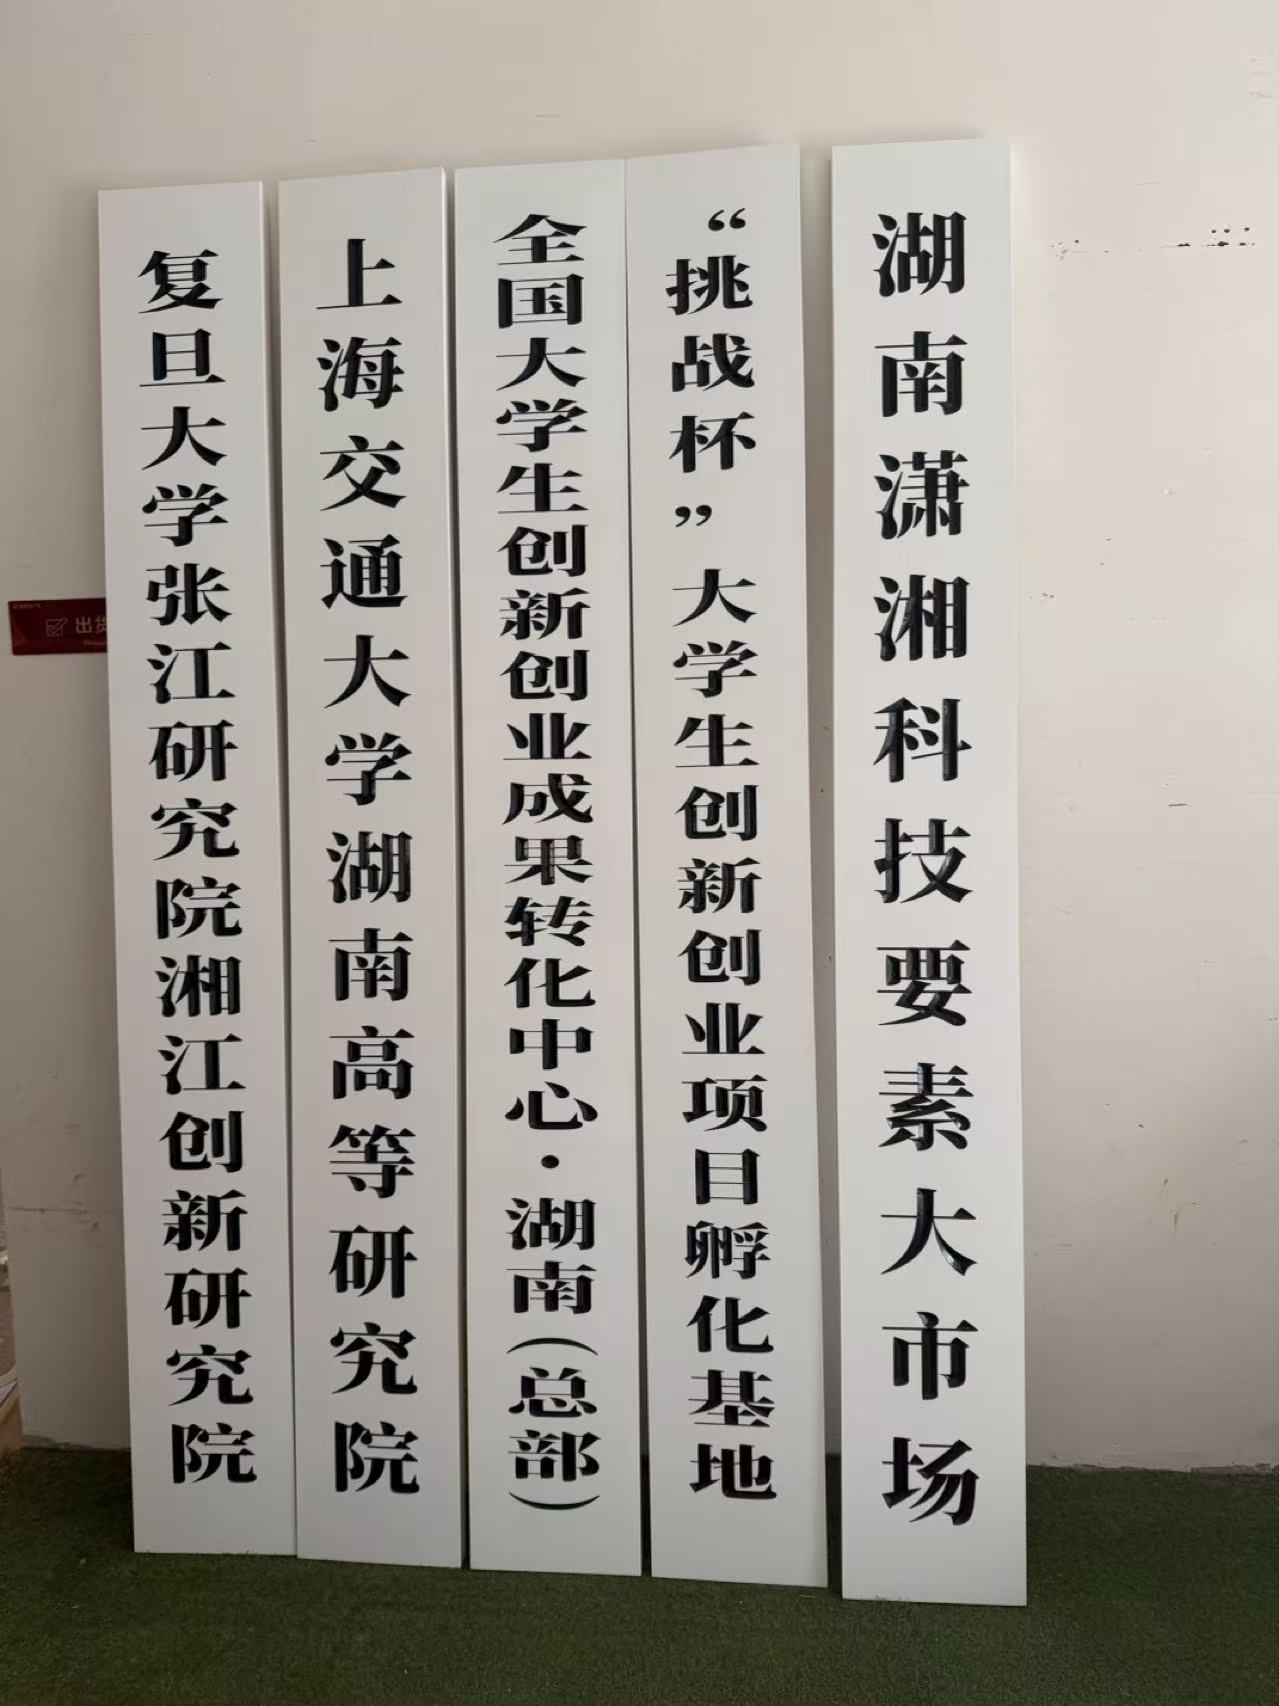 复旦大学张江研究院湘江创新研究院
上海交通大学湖南高等研究院
全国大学生创新创业成果转化中心·湖南(总部)
“挑战杯”大学生创新创业项目孵化基地
湖南潇湘科技要素大市场
出货